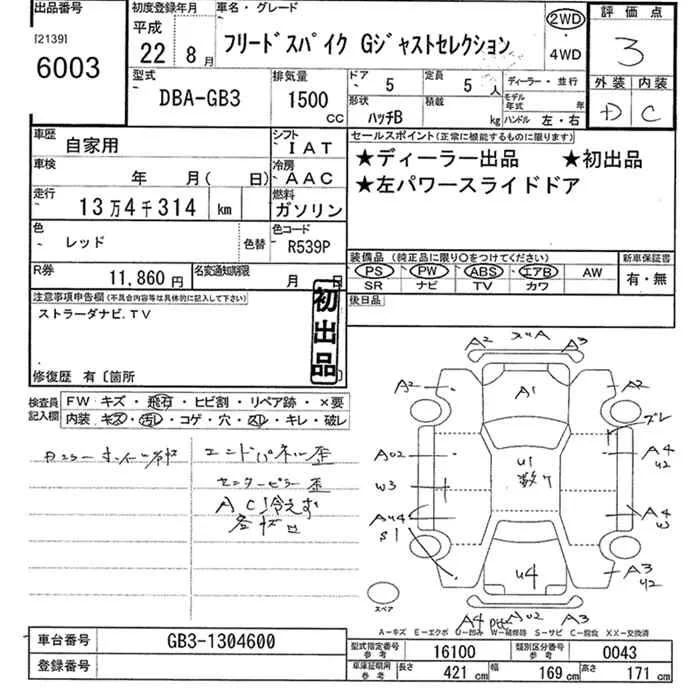 出品番号
[2139]
6003
初度登録年月
平成
22 8月
車名・グレード
フリードスパイク Gジャストセレクション
2WD
・
4WD
評価点
3
外装 内装
D C
型式
DBA-GB3
排気量
1500
CC
ドア
5
定員
5 人
形状
ハッチB
積載
kg
ディーラー・並行
モデル年式 年
ハンドル 左・右
車歴
自家用
シフト
IAT
車検
年 月( 日)
冷房
AAC
走行
13万4千314 km
燃料
ガソリン
色
レッド
色替
色コード
R539P
R券
11,860円
名変通知期限
月 日
セールスポイント(正常に機能するものに限ります)
★ディーラー出品 ★初出品
★左パワースライドドア
装備品(純正品に限り○をつけてください)
PS PW ABS エアB AW
SR ナビ TV カワ
新車保証書
有・無
後日品
注意事項申告欄(不具合内容等は具体的に記入して下さい)
ストラーダナビ.TV
初出品
修復歴 有〔箇所 〕
検査員
記入欄
FW キズ・飛石・ヒビ割・リペア跡・×要
内装 キズ・汚レ・コゲ・穴・スレ・キレ・破レ
エンドパネル歪
センターピラー歪
AC冷えず
各キズ凹
A2 A3
A2 A1 A2
ズレ
AU2 A4
U2
U1
数ヶ
W3
AU4 A4
W
S1
U4 A3
U2
スペア
A4 AU2 A3
A-キズ E-エクボ U-凹み W-補修跡 S-サビ C-腐食 XX-交換済
車台番号
GB3-1304600
登録番号
型式指定番号
参考
16100
類別区分番号
参考
0043
車庫証明用
参考
長さ 421 cm 幅 169 cm 高さ 171 cm